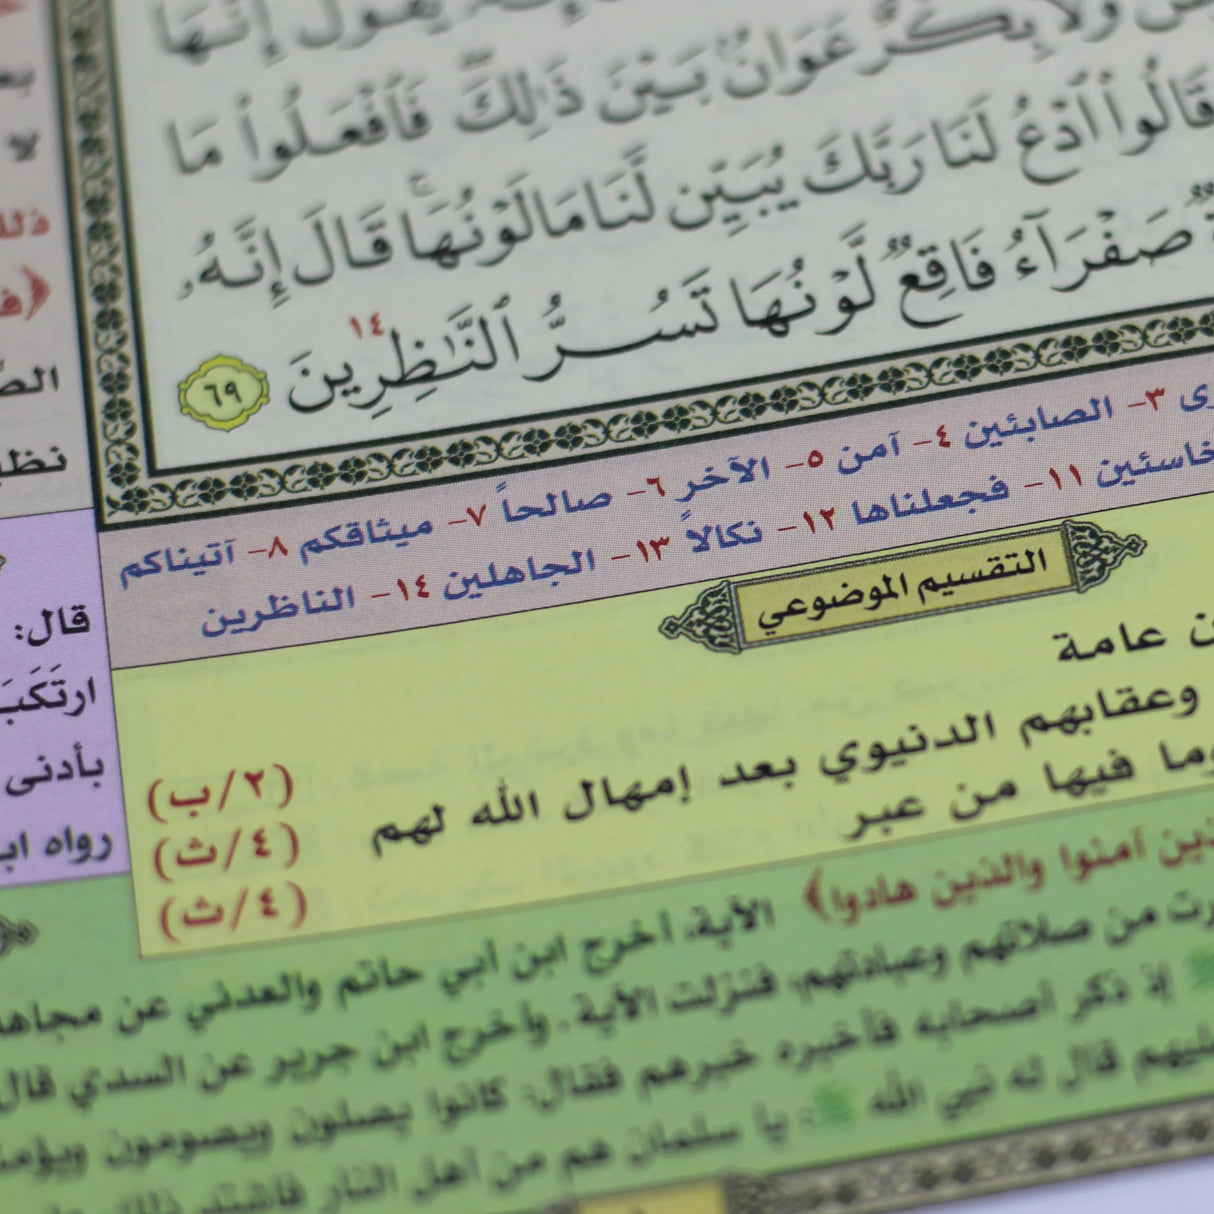 يقول إنها
ولا بكر عوان بين ذلك فافعلوا ما
قَالُوا۟ ٱدْعُ لَنَا رَبَّكَ يُبَيِّن لَّنَا مَا لَوْنُهَا ۚ قَالَ إِنَّهُۥ
صَفْرَآءُ فَاقِعٌ لَّوْنُهَا تَسُرُّ ٱلنَّـٰظِرِينَ ١٤ ٦٩
٣- الصابئين ٤- آمن ٥- الآخر ٦- صالحاً ٧- ميثاقكم ٨- آتيناكم
خاسئين ١١- فجعلناها ١٢- نكالاً ١٣- الجاهلين ١٤- الناظرين
التقسيم الموضوعي
عامة (٢/ب)
وعقابهم الدنيوي بعد إمهال الله لهم (٤/ث)
وما فيها من عبر (٤/ث)
آمنوا والذين هادوا﴾ الآية، أخرج ابن أبي حاتم والعدني عن
من صلاتهم وعبادتهم، فنزلت الآية. وأخرج ابن جرير عن السدي قال
إذ ذكر أصحابه فأخبره خبرهم فقال: كانوا يصلون ويصومون
قال له نبي الله : يا سلمان هم من أهل النار فاشتد ذلك
لا
قال:
بأدنى
رواه